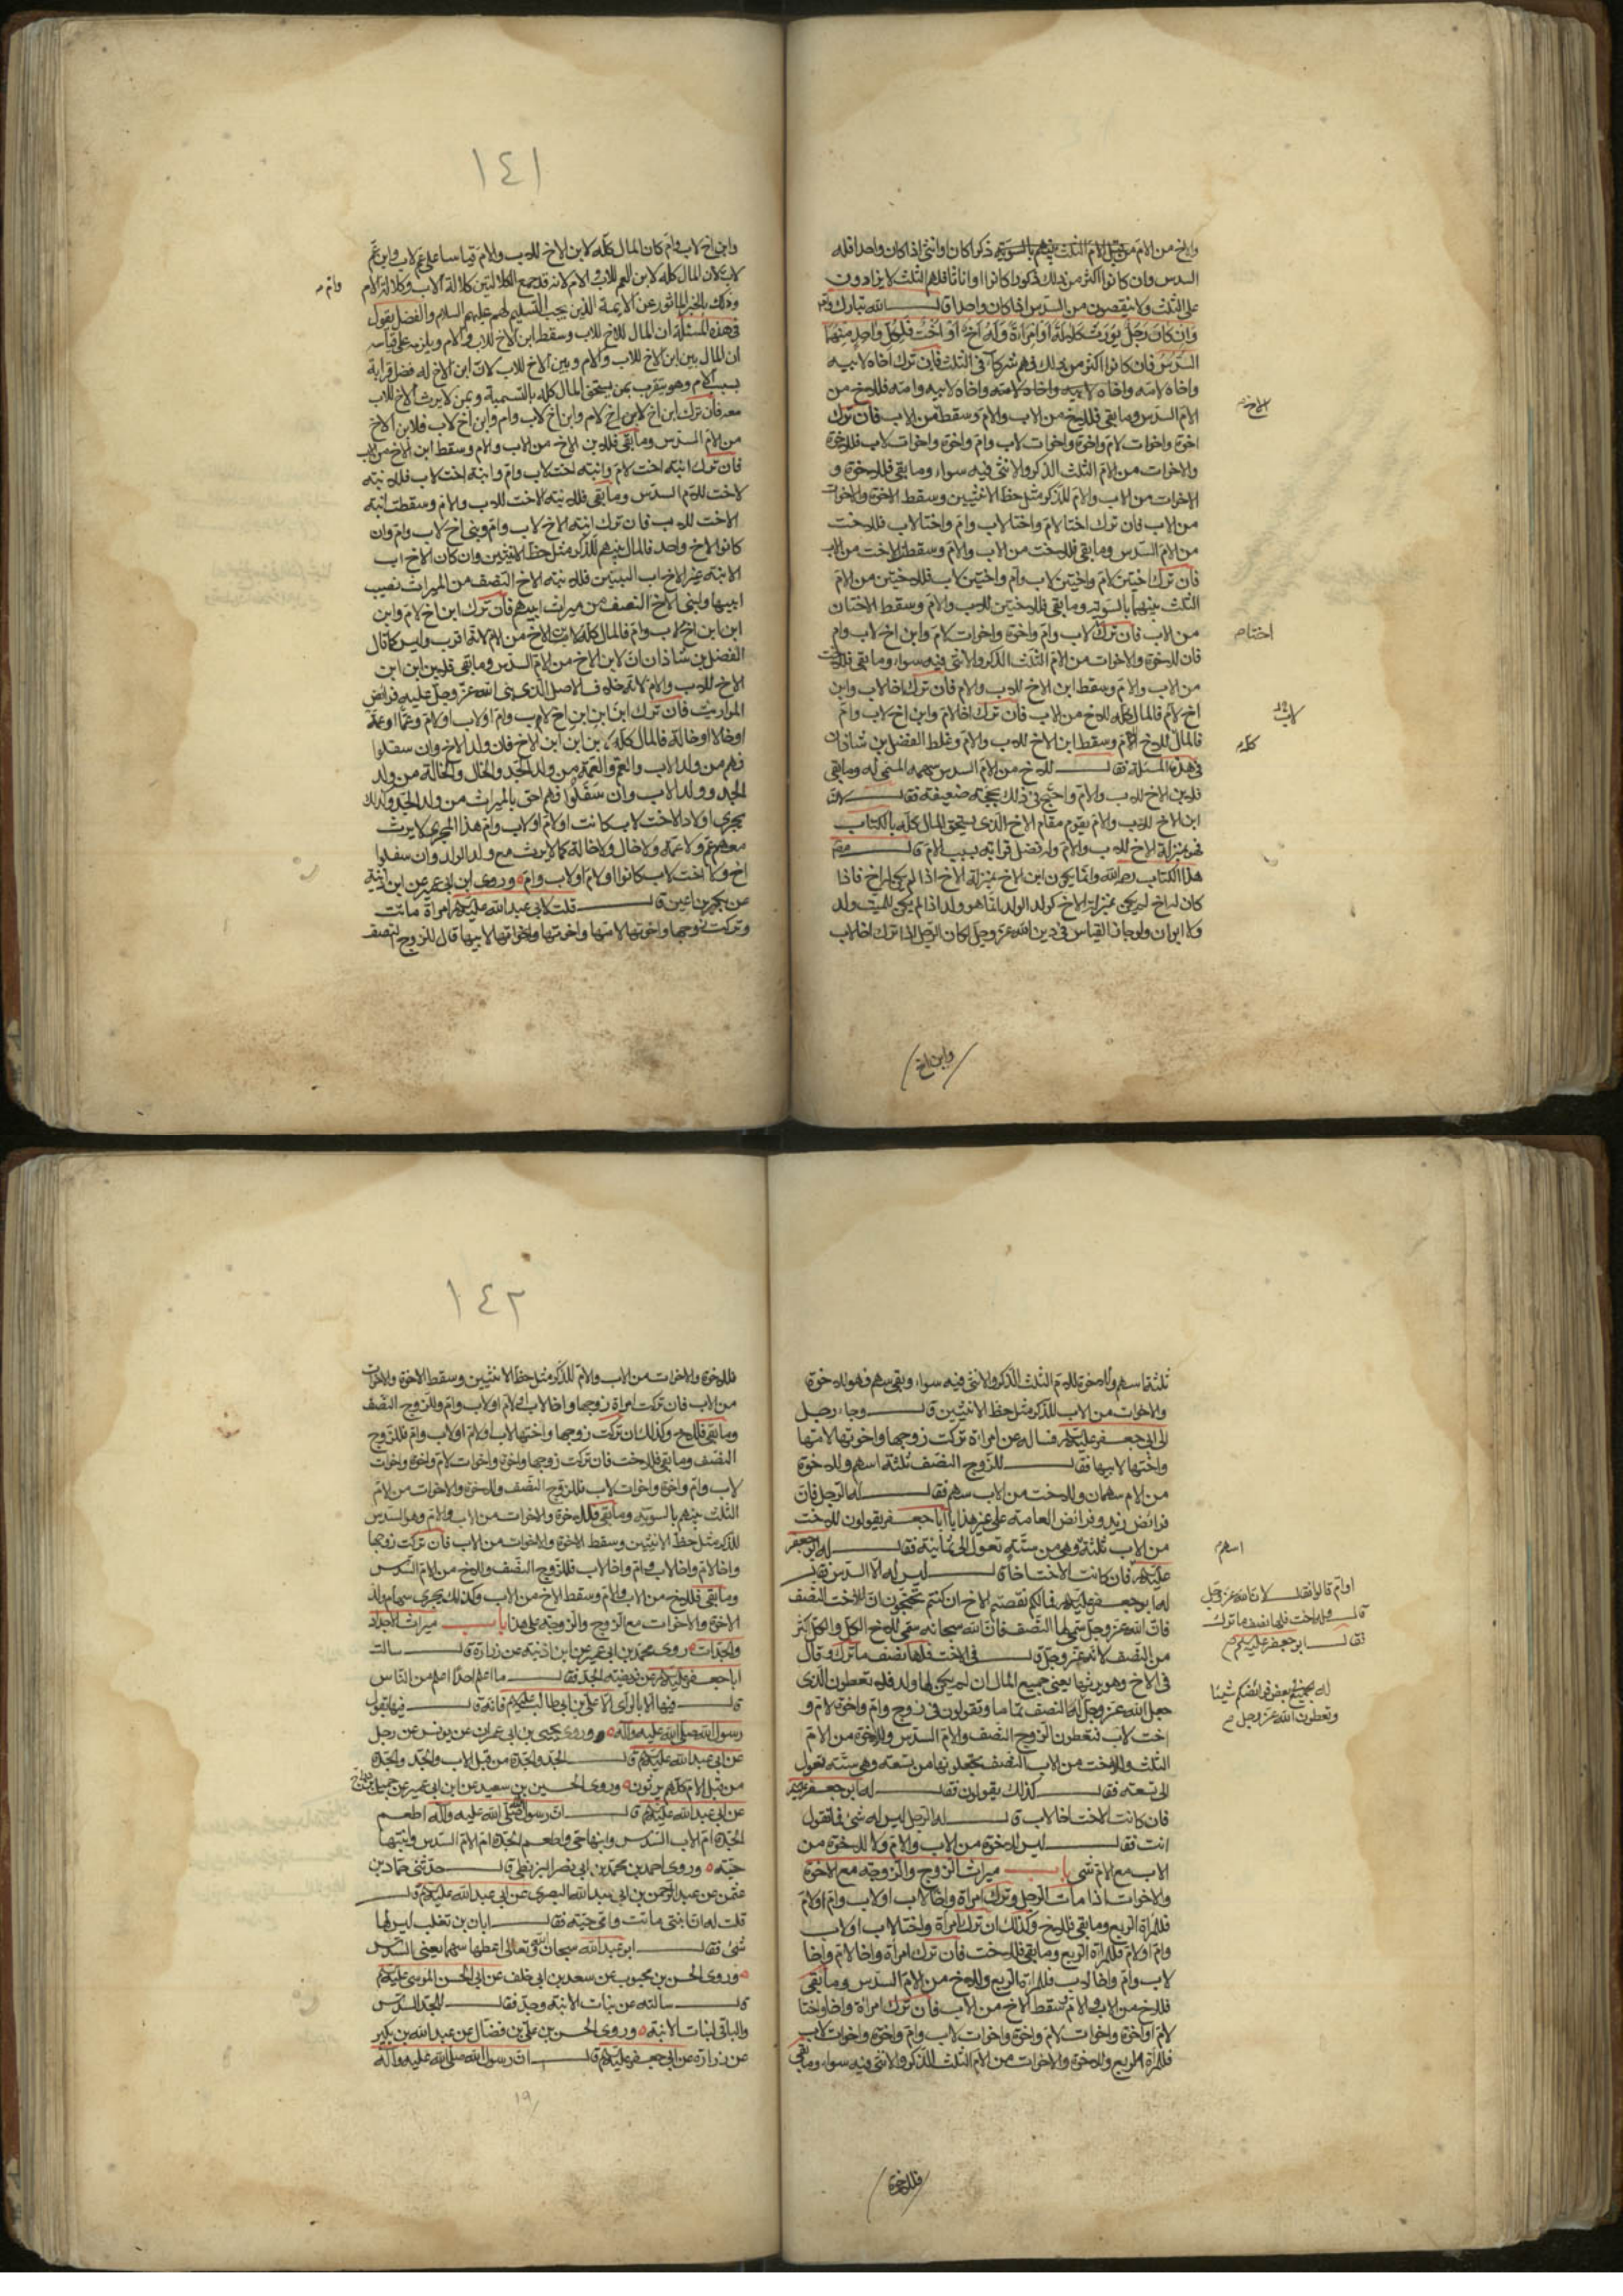 والاخ من الام من قبل الام الثلث بينهم بالسوية ذكرا كان او انثى اذا كان واحدا فله
السدس وان كانوا اكثر من ذلك ذكورا كانوا او اناثا فلهم الثلث لا يزادون
على الثلث ولا ينقصون من السدس اذا كان واحدا قال الله تبارك وتعالى
وَاِن كانَ رَجُلٌ يُورَثُ كَلالَةً اَوِ امرَاَةٌ وَلَهُ اَخٌ اَوْ اُخْتٌ فَلِكُلِّ واحِدٍ مِنْهُمَا
السُّدُسُ فان كانوا اكثر من ذلك فهم شركاء فى الثلث فان ترك اخاه لابيه
واخاه لامه واخاه لابيه واخاه لامه واخاه لابيه وامه فللاخ من
الام السدس وما بقى فللاخ من الاب والام وسقط من الاب فان ترك
الاخ
اخوة واخوات لام واخوة واخوات لاب وام واخوة واخوات لاب فللاخوة
والاخوات من الام الثلث الذكر والانثى فيه سواء وما بقى فللاخوة و
الاخوات من الاب والام للذكر مثل حظ الانثيين وسقط الاخوة والاخوات
من الاب فان ترك اختا لام واختا لاب وام واختا لاب فللاخت
من الام السدس وما بقى فللاخت من الاب والام وسقط الاخت من الاب
فان ترك اختين لام واختين لاب وام واختين لاب فللاختين من الام
الثلث بينهما بالسوية وما بقى فللاختين للاب والام وسقط الاختان
من الاب فان ترك لاب وام واخوة واخوات لام وابن اخ لاب وام
اختا
فان للاخوة والاخوات من الام الثلث الذكر والانثى فيه سواء وما بقى فللاخت
من الاب والام وسقط ابن الاخ للاب والام فان ترك اخا لاب وابن
اخ لام فالمال كله للاخ من الاب فان ترك اخا لام وابن اخ لاب وام
فالمال للاخ للام وسقط ابن الاخ للاب والام وغلط الفضل بن شاذان
كله
فى هذه المسئلة فقال للاخ من الام السدس سهمه المسمى له وما بقى
فلابن الاخ للاب والام واحتج فى ذلك بحجة ضعيفة فقال لان
ابن الاخ للاب والام يقوم مقام الاخ الذى يستحق المال كله بالكتاب
فهو بمنزلة الاخ للاب والام وله فضل قرابة بسبب الام قال مصنف
هذا الكتاب رحمه الله وانما يكون ابن الاخ بمنزلة الاخ اذا لم يكن اخ فاذا
كان له اخ لم يكن بمنزلة الاخ كولد الولد انما هو ولد اذا لم يكن للميت ولد
ولا ابوان ولو جاز القياس فى دين الله عز وجل لكان الرجل اذا ترك اخا لاب
وابن اخ
١٤١
وابن اخ لاب وام كان المال كله لابن الاخ للاب والام قياسا على عم لاب وابن عم
لاب لان المال كله لابن العم للاب والام لانه قد جمع الكلالتين كلالة الاب وكلالة الام
وام
وذلك بالخبر الماثور عن الائمة الذين يجب التسليم لهم عليهم السلام والفضل يقول
فى هذه المسئلة ان المال للاخ للاب وسقط ابن الاخ للاب والام ويلزمه على قياسه
ان المال بين ابن الاخ للاب والام وبين الاخ للاب لان ابن الاخ له فضل قرابة
بسبب الام وهو يتقرب بمن يستحق المال كله بالتسمية وبمن لا يرث الاخ للاب
معه فان ترك ابن اخ لام وابن اخ لاب وام وابن اخ لاب فلابن الاخ
من الام السدس وما بقى فلابن الاخ من الاب والام وسقط ابن الاخ من الاب
فان ترك ابنة اخت لام وابنة اخت لاب وام وابنة اخت لاب فلابنة
الاخت للام السدس وما بقى فلابنة الاخت للاب والام وسقطت ابنة
الاخت للاب فان ترك ابنة الاخ لاب وام وبنى اخ لاب وام وان
كانوا لاخ واحد فالمال بينهم للذكر مثل حظ الانثيين وان كان الاخ اب
الابنة غير الاخ اب البنين فلابنة الاخ النصف من الميراث نصيب
ابيها ولبنى الاخ النصف من ميراث ابيهم فان ترك ابن اخ لام وابن
ابن ابن اخ لاب وام فالمال كله لابن الاخ من الام لانه اقرب وليس كما قال
الفضل بن شاذان ان لابن الاخ من الام السدس وما بقى فلابن ابن ابن
الاخ للاب والام لانه خلاف الاصل الذى بنى الله عز وجل عليه فرائض
المواريث فان ترك ابن ابن ابن اخ لاب وام او لاب او لام وعما او عمة
او خالا او خالة فالمال كله لابن ابن ابن الاخ فان ولد الاخ وان سفلوا
فهم من ولد الاب والعم والعمة من ولد الجد والخال والخالة من ولد
الجد وولد الاب وان سفلوا فهم احق بالميراث من ولد الجد وكذلك
يجرى اولاد الاخت لاب كانت او لام او لاب وام هذا المجرى لا يرث
معهم عم ولا عمة ولا خال ولا خالة كما لا يرث مع ولد الولد وان سفلوا
اخ ولا اخت لاب كانوا او لام او لاب وام وروى ابن ابى عمير عن ابن اذينة
عن بكير بن اعين قال قلت لابى عبد الله عليه السلام امراة ماتت
وتركت زوجها واخوتها لامها واخوتها واخواتها لابيها قال للزوج النصف
ثلثة اسهم وللاخوة للام الثلث الذكر والانثى فيه سواء وبقى سهم فهو للاخوة
والاخوات من الاب للذكر مثل حظ الانثيين قال وجاء رجل
الى ابى جعفر عليه السلام فساله عن امراة تركت زوجها واخوتها لامها
واختها لابيها فقال للزوج النصف ثلثة اسهم وللاخوة
من الام سهمان وللاخت من الاب سهم فقال له الرجل فان
فرائض زيد وفرائض العامة على غير هذا يا ابا جعفر يقولون للاخت
من الاب ثلثة وهى من ستة تعول الى ثمانية فقال له ابو جعفر
اسهم
عليه السلام فان كانت الاخت اخا قال ليس له الا السدس فقال
له ابو جعفر عليه السلام فما لكم نقصتم الاخ ان كنتم تحتجون ان للاخت النصف
او ام قالوا فقال لان الله عز وجل
قال وله اخت فلها نصف ما ترك
فقال ابو جعفر عليه السلام
فان الله عز وجل سمى لها النصف فان الله سبحانه سمى للاخ الكل والكل اكثر
من النصف لانه عز وجل قال فى الاخت فلها نصف ما ترك وقال
فى الاخ وهو يرثها يعنى جميع المال ان لم يكن لها ولد فلا تعطون الذى
له الجميع فى بعض فرائضكم شيئا
وتعطون الله عز وجل
جعل الله عز وجل له النصف تماما وتقولون فى زوج وام واخوة لام و
اخت لاب فتعطون الزوج النصف والام السدس والاخوة من الام
الثلث والاخت من الاب النصف تجعلونها من تسعة وهى ستة تعول
الى تسعة فقال كذلك يقولون فقال له ابو جعفر عليه السلام
فان كانت الاخت اخا لاب قال له الرجل ليس له شئ فما تقول
انت فقال ليس للاخوة من الاب والام ولا للاخوة من
الاب مع الام شئ باب ميراث الزوج والزوجة مع الاخوة
والاخوات اذا مات الرجل وترك امراة واخا لاب او لاب وام او لام
فللمراة الربع وما بقى فللاخ وكذلك ان ترك امراة واختا لاب او لاب
وام او لام فللمراة الربع وما بقى فللاخت فان ترك امراة واخا لام واخا
لاب وام واخا لاب فللمراة الربع وللاخ من الام السدس وما بقى
فللاخ من الاب والام وسقط الاخ من الاب فان ترك امراة واخا واختا
لام او اخوة واخوات لام واخوة واخوات لاب وام واخوة واخوات لاب
فللمراة الربع وللاخوة والاخوات من الام الثلث الذكر والانثى فيه سواء وما بقى
فللاخوة
١٤٢
فللاخوة والاخوات من الاب والام للذكر مثل حظ الانثيين وسقط الاخوة والاخوات
من الاب فان تركت امراة زوجها واخا لاب او لام او لاب وام فللزوج النصف
وما بقى فللاخ وكذلك ان تركت زوجها واختها لاب او لام او لاب وام فللزوج
النصف وما بقى فللاخت فان تركت زوجها واخوة واخوات لام واخوة واخوات
لاب وام واخوة واخوات لاب فللزوج النصف وللاخوة والاخوات من الام
الثلث بينهم بالسوية وما بقى فللاخوة والاخوات من الاب والام وهو السدس
للذكر مثل حظ الانثيين وسقط الاخوة والاخوات من الاب فان تركت زوجها
واخا لام واخا لاب وام واخا لاب فللزوج النصف وللاخ من الام السدس
وما بقى فللاخ من الاب والام وسقط الاخ من الاب وكذلك يجرى سهام ولد
الاخوة والاخوات مع الزوج والزوجة على هذا باب ميراث الاجداد
والجدات روى محمد بن ابى عمير عن ابن اذينة عن زرارة قال سالت
ابا جعفر عليه السلام عن فريضة الجد فقال ما اعلم احدا من الناس
قال فيها الا بالراى الا على بن ابى طالب عليه السلام فانه قال فيها بقول
رسول الله صلى الله عليه وآله وروى يحيى بن ابى عمران عن يونس عن رجل
عن ابى عبد الله عليه السلام قال الجد والجدة من قبل الاب والجد والجدة
من قبل الام كلهم يرثون وروى الحسين بن سعيد عن ابن ابى عمير عن جميل بن دراج
عن ابى عبد الله عليه السلام قال ان رسول الله صلى الله عليه وآله اطعم
الجدة ام الاب السدس وابنها حى واطعم الجدة ام الام السدس وابنتها
حية وروى احمد بن محمد بن ابى نصر البزنطى قال حدثنى حماد بن
عثمن عن عبد الرحمن بن ابى عبد الله البصرى عن ابى عبد الله عليه السلام قال
قلت له ان ابنتى ماتت وامى حية فقال ابان بن تغلب ليس لها
شئ فقال ابو عبد الله سبحان الله وتعالى اعطها سهما يعنى السدس
وروى الحسن بن محبوب عن سعد بن ابى خلف عن ابى الحسن الموسى عليه السلام
قال سالته عن بنات الابنة وجد فقال للجد السدس
والباقى لبنات الابنة وروى الحسن بن على بن فضال عن عبد الله بن بكير
عن زرارة عن ابى جعفر عليه السلام قال ان رسول الله صلى الله عليه وآله
١٩